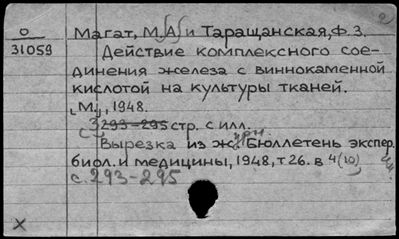 О
31059
Магат, М.А. и Таращанская, Ф.З.
Действие комплексного сое-
динения железа с виннокаменной
кислотой на культуры тканей.
М., 1948.
3 293-295 стр. с илл.
Вырезка из журн. Бюллетень экспер.
биол. и медицины, 1948, т 26. в 4(10)
с. 293-295
X